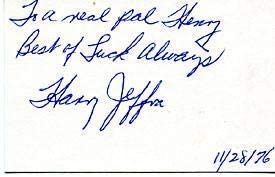 To a real pal Henry
Best of Luck Always
Harry Jeffra
11/28/76